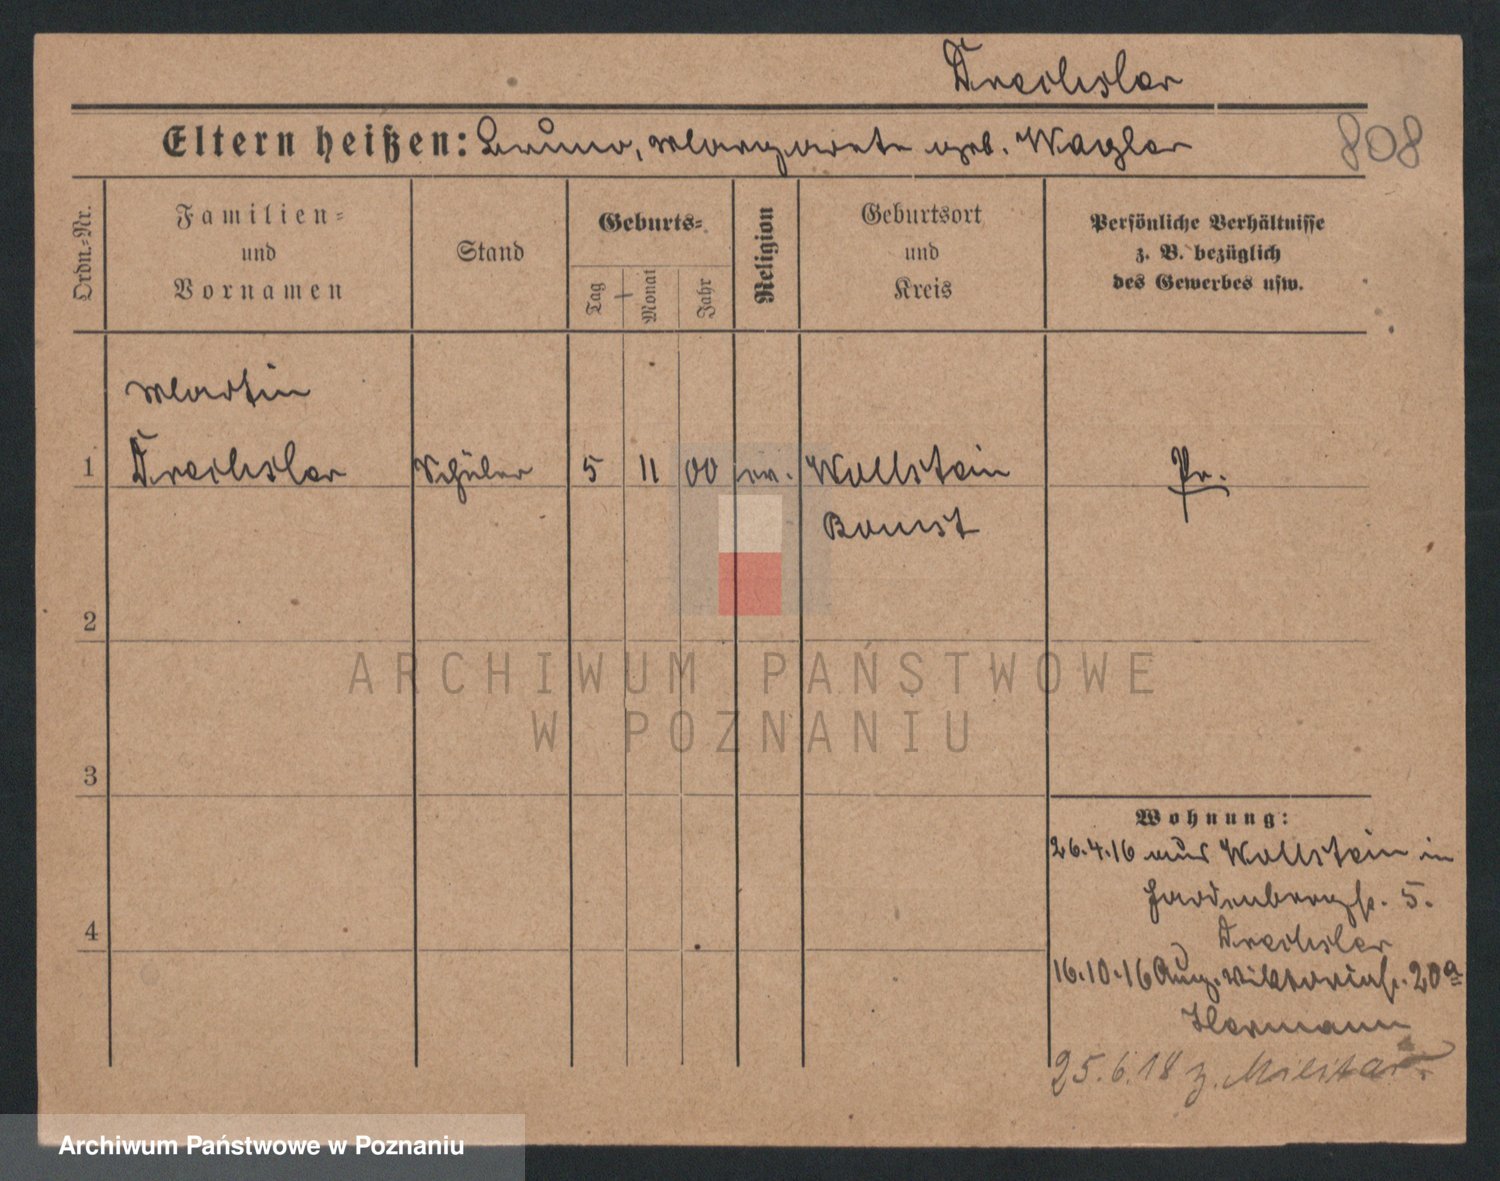 Drechsler
Eltern heißen: Bruno, Margarete geb. Wagler
808
Ordn.=Nr.
Familien=
und
Vornamen
Stand
Geburts=
Tag
Monat
Jahr
Religion
Geburtsort
und
Kreis
Persönliche Verhältnisse
z. B. bezüglich
des Gewerbes usw.
Martin
1 Drechsler Schüler 5 11 00 ev. Wollstein Pr.
Bomst
2
3
4
Wohnung:
26.4.16 aus Wollstein in
Hardenbergst. 5.
Drechsler
16.10.16 Aug. Viktoriast. 20a
Hermann
25.6.18 z. Militär
ARCHIWUM PAŃSTWOWE
W POZNANIU
Archiwum Państwowe w Poznaniu